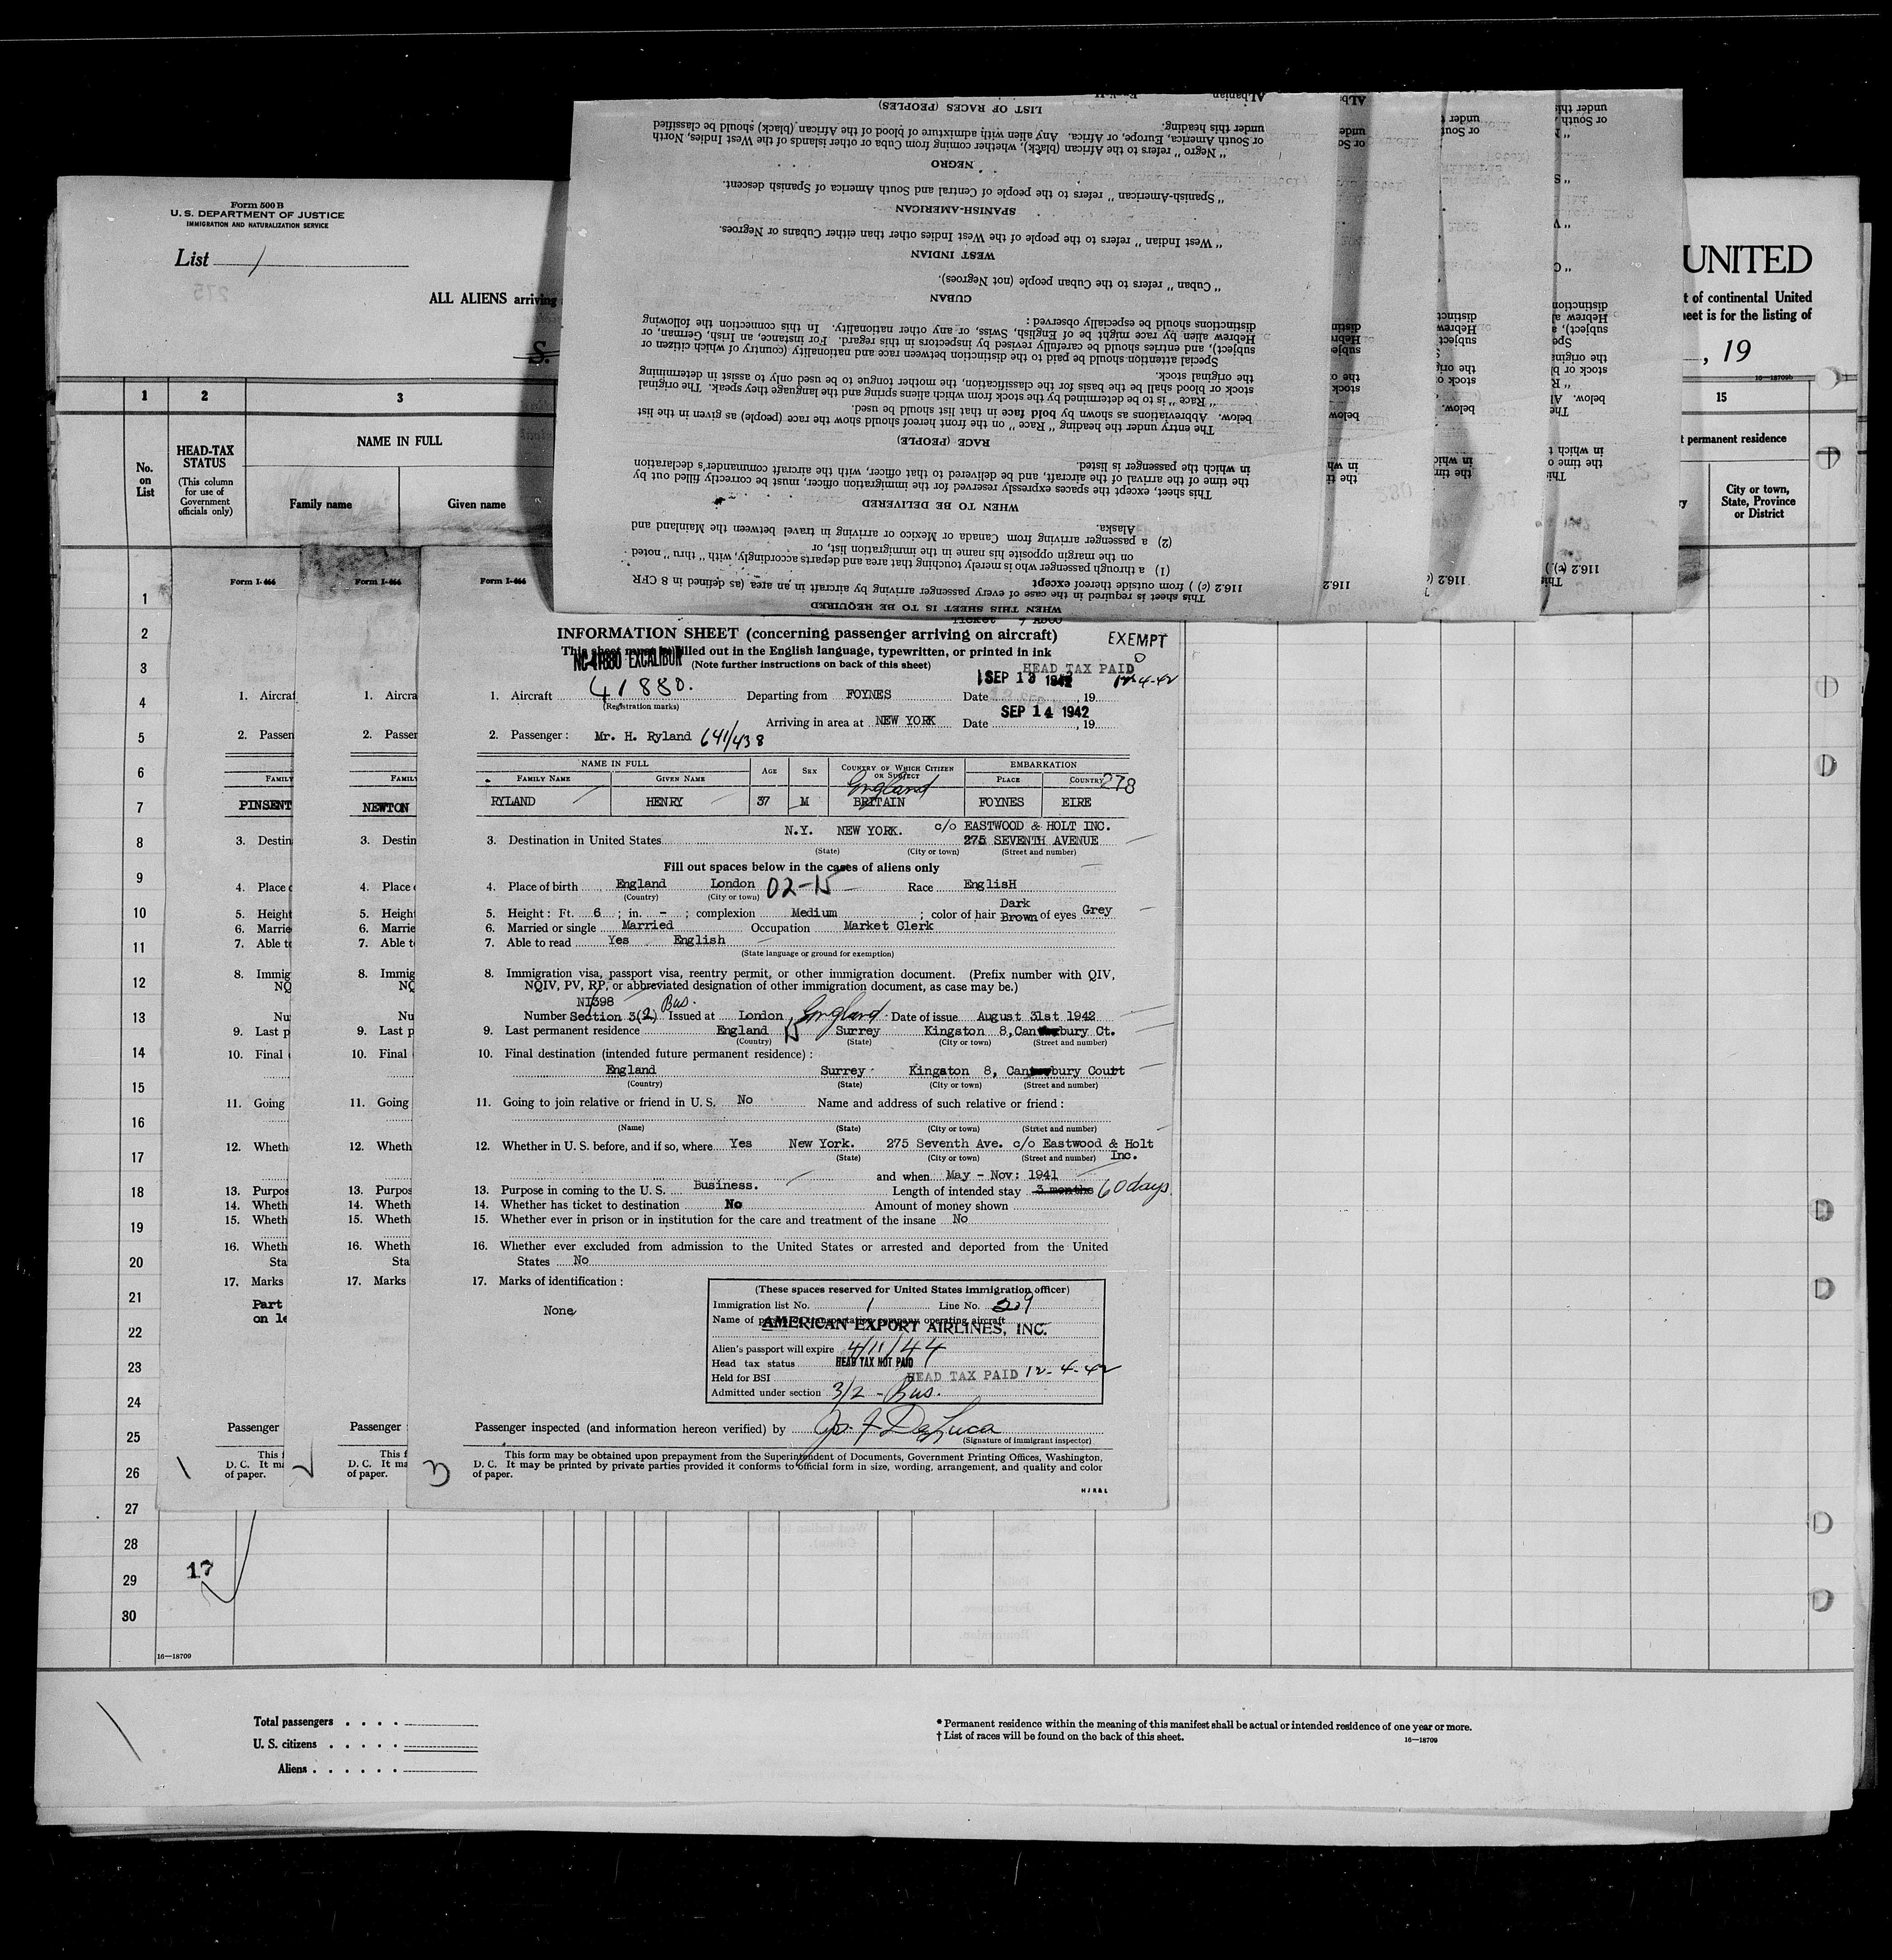 Form 500 B
U. S. DEPARTMENT OF JUSTICE
IMMIGRATION AND NATURALIZATION SERVICE
List 1
ALL ALIENS arriving
S.
UNITED
t of continental United
eet is for the listing of
, 19
16—18709b
1 2 3 15
No. on List
HEAD-TAX STATUS
(This column for use of Government officials only)
NAME IN FULL
Family name Given name
t permanent residence
City or town, State, Province or District
LIST OF RACES (PEOPLES)
under this heading.
or South America, Europe, or Africa. Any alien with admixture of blood of the African (black) should be classified
"Negro" refers to the African (black), whether coming from Cuba or other islands of the West Indies, North
NEGRO
"Spanish-American" refers to the people of Central and South America of Spanish descent.
SPANISH-AMERICAN
"West Indian" refers to the people of the West Indies other than either Cubans or Negroes.
WEST INDIAN
"Cuban" refers to the Cuban people (not Negroes).
CUBAN
distinctions should be especially observed:
Hebrew alien by race might be of English, Swiss, or any other nationality. In this connection the following
subject), and entries should be carefully revised by inspectors in this regard. For instance, an Irish, German, or
Special attention should be paid to the distinction between race and nationality (country of which citizen or
the original stock.
stock or blood shall be the basis for the classification, the mother tongue to be used only to assist in determining
"Race" is to be determined by the stock from which aliens spring and the language they speak. The original
below. Abbreviations as shown by bold face in that list should be used.
The entry under the heading "Race" on the front hereof should show the race (people) as given in the list
RACE (PEOPLE)
in which the passenger is listed.
the time of the arrival of the aircraft, and be delivered to that officer, with the aircraft commander's declaration
This sheet, except the spaces expressly reserved for the immigration officer, must be correctly filled out by
WHEN TO BE DELIVERED
Alaska.
(2) a passenger arriving from Canada or Mexico or arriving in travel between the Mainland and
on the margin opposite his name in the immigration list, or
(1) a through passenger who is merely touching that area and departs accordingly, with "thru" noted
116.2 (c) ) from outside thereof except
This sheet is required in the case of every passenger arriving by aircraft in an area (as defined in 8 CFR
WHEN THIS SHEET IS TO BE REQUIRED
Form I-466 Form I-466 Form I-466
INFORMATION SHEET (concerning passenger arriving on aircraft)
EXEMPT
This sheet must be filled out in the English language, typewritten, or printed in ink
NC-41880 EXCALIBUR
(Note further instructions on back of this sheet)
HEAD TAX PAID
12-4-42
1. Aircraft 41880. Departing from FOYNES Date SEP 13 1942, 19
(Registration marks)
Arriving in area at NEW YORK Date SEP 14 1942, 19
2. Passenger: Mr. H. Ryland 641/438
NAME IN FULL
FAMILY NAME GIVEN NAME AGE SEX COUNTRY OF WHICH CITIZEN OR SUBJECT EMBARKATION
PLACE COUNTRY 278
England
PINSENT NEWTON
RYLAND HENRY 37 M BRITAIN FOYNES EIRE
c/o EASTWOOD & HOLT INC.
3. Destination in United States N.Y. NEW YORK. 275 SEVENTH AVENUE
(State) (City or town) (Street and number)
Fill out spaces below in the cases of aliens only
4. Place of birth England London 02-15 Race EnglisH
(Country) (City or town)
5. Height: Ft. 6; in. -; complexion Medium; color of hair Dark Brown of eyes Grey
6. Married or single Married Occupation Market Clerk
7. Able to read Yes English
(State language or ground for exemption)
8. Immigration visa, passport visa, reentry permit, or other immigration document. (Prefix number with QIV,
NQIV, PV, RP, or abbreviated designation of other immigration document, as case may be.)
NI398
Number Section 3(2) Bus. Issued at London, England. Date of issue August 31st 1942
9. Last permanent residence England 15 Surrey Kingston 8, Canterbury Ct.
(Country) (State) (City or town) (Street and number)
10. Final destination (intended future permanent residence):
England Surrey Kingston 8, Canterbury Court
(Country) (State) (City or town) (Street and number)
11. Going to join relative or friend in U. S. No Name and address of such relative or friend:
(Name) (State) (City or town) (Street and number)
12. Whether in U. S. before, and if so, where Yes New York. 275 Seventh Ave. c/o Eastwood & Holt Inc.
(State) (City or town) (Street and number)
and when May - Nov: 1941
13. Purpose in coming to the U. S. Business. Length of intended stay 3 months 60 days
14. Whether has ticket to destination No Amount of money shown
15. Whether ever in prison or in institution for the care and treatment of the insane No
16. Whether ever excluded from admission to the United States or arrested and deported from the United
States No
17. Marks of identification:
None
Part
(These spaces reserved for United States immigration officer)
Immigration list No. 1 Line No. 29
Name of person or transportation company operating aircraft
AMERICAN EXPORT AIRLINES, INC.
Alien's passport will expire 4/11/44
Head tax status HEAD TAX NOT PAID
Held for BSI HEAD TAX PAID 12-4-42
Admitted under section 3/2 - Bus.
Passenger inspected (and information hereon verified) by Jos. J. DeLuca
(Signature of immigrant inspector)
This form may be obtained upon prepayment from the Superintendent of Documents, Government Printing Offices, Washington,
D. C. It may be printed by private parties provided it conforms to official form in size, wording, arrangement, and quality and color
of paper.
1 2 3
1
2
3
4
5
6
7
8
9
10
11
12
13
14
15
16
17
18
19
20
21
22
23
24
25
26
27
28
29
30
17
16—18709
Total passengers
U. S. citizens
Aliens
* Permanent residence within the meaning of this manifest shall be actual or intended residence of one year or more.
† List of races will be found on the back of this sheet.
16—18709